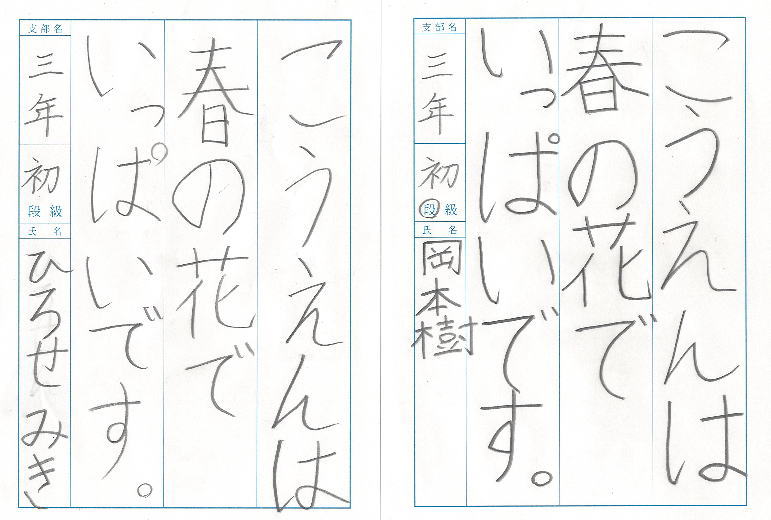 こうえんは
春の花で
いっぱいです。
支部名
三年
初
段級
氏名
岡本樹
こうえんは
春の花で
いっぱいです。
支部名
三年
初
段級
氏名
ひろせみき